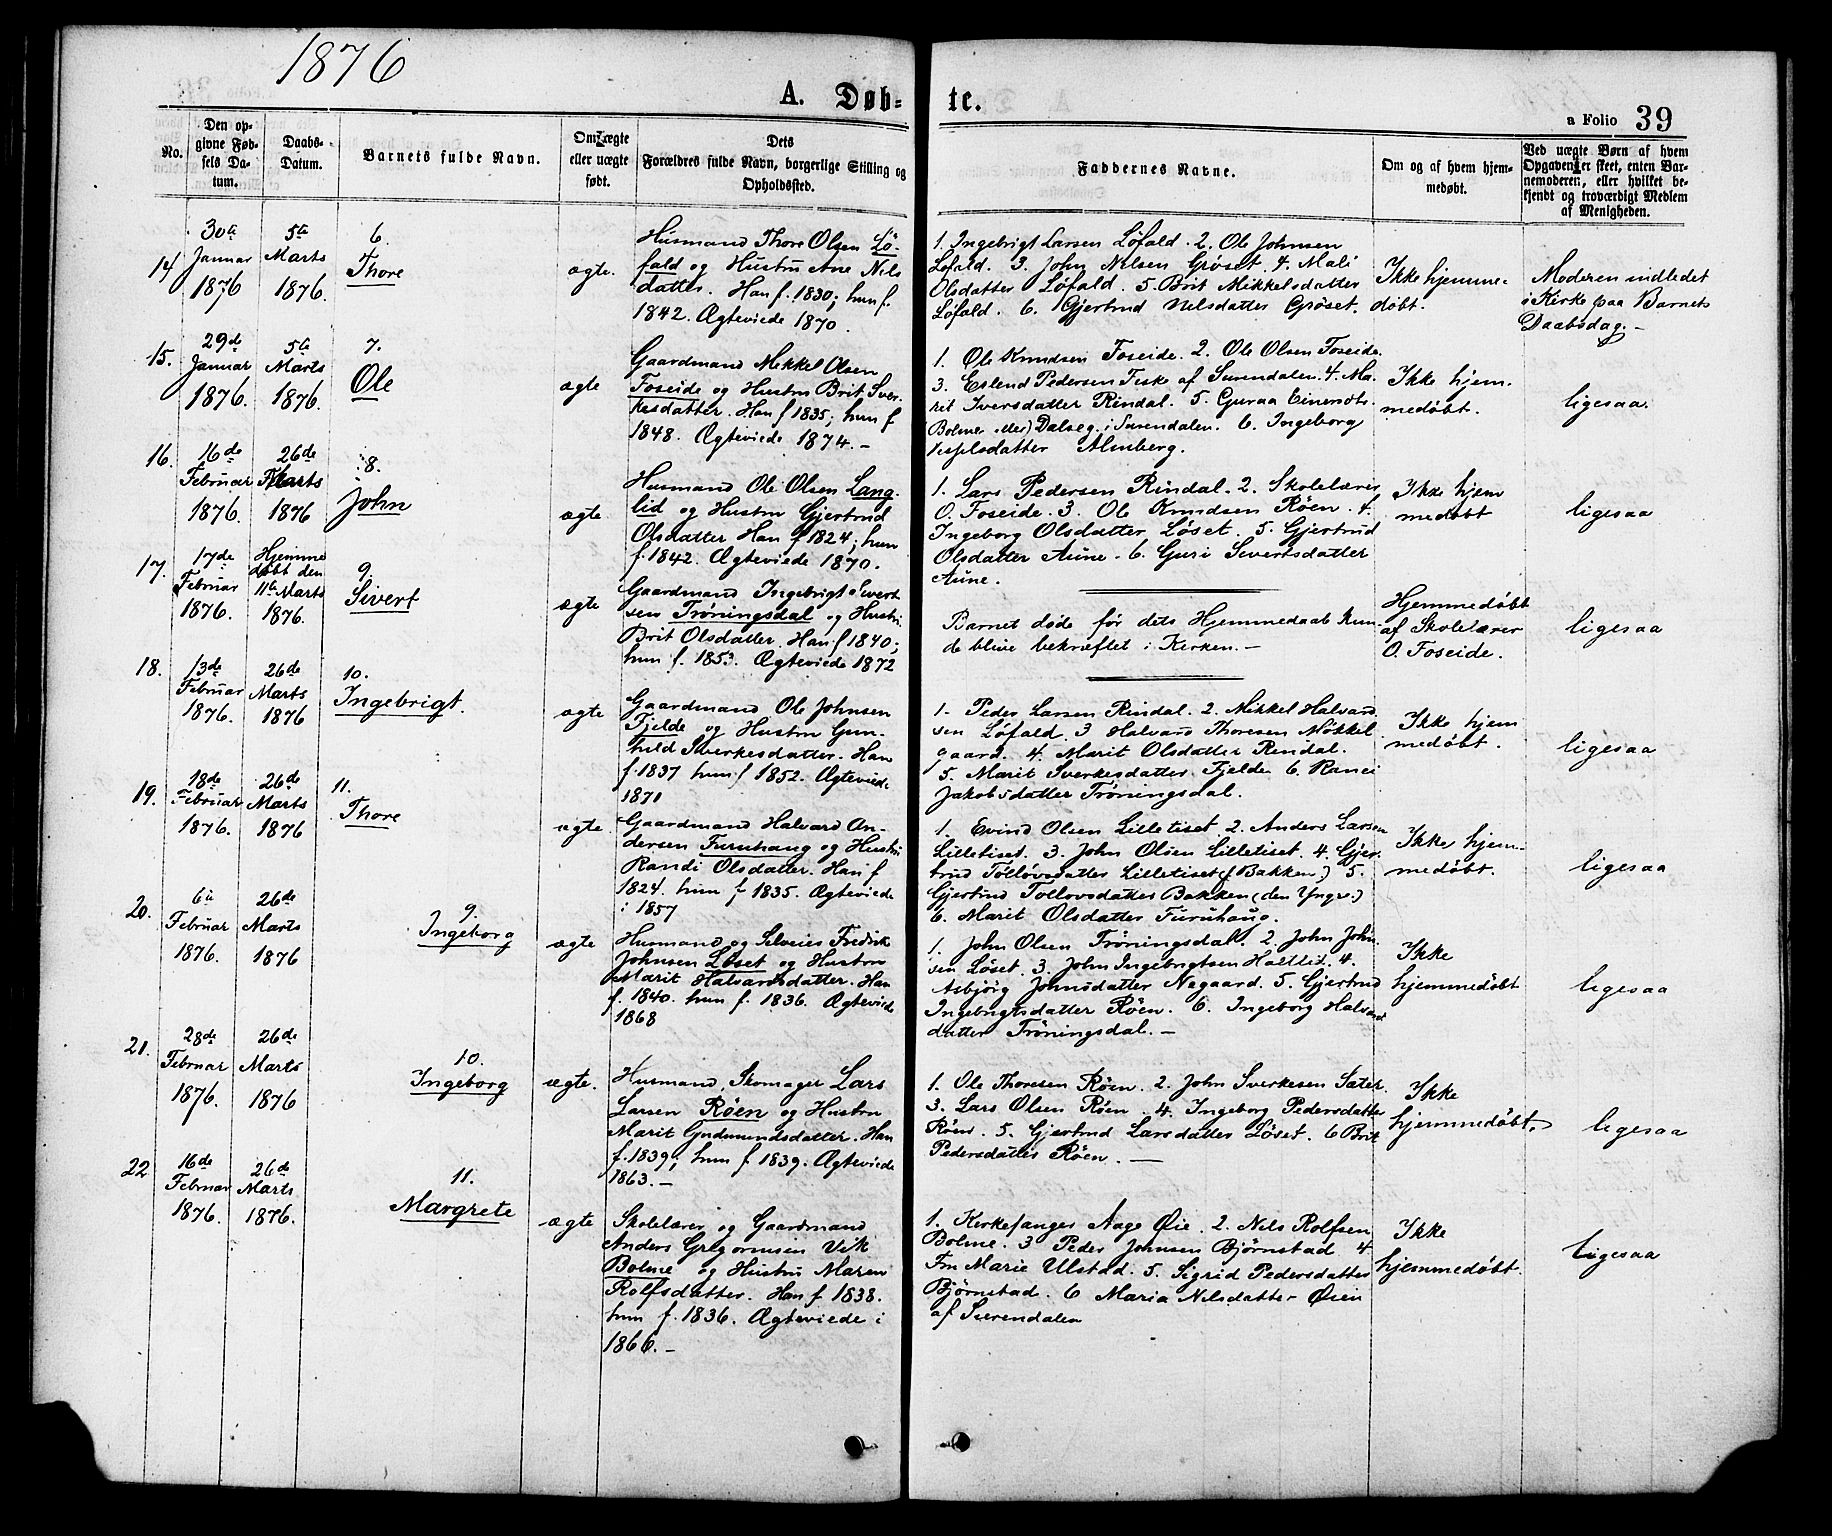 1876
A. Døb-
te.
a Folio 39
No.
Den op-
givne Fød-
sels Da-
tum.
Daabs-
Datum.
Barnets fulde Navn.
Om ægte
eller uægte
født.
Dets
Forældres fulde Navn, borgerlige Stilling og
Opholdssted.
Faddernes Navne.
Om og af hvem hjem-
medøbt.
Ved uægte Børn af hvem
Opgaven er skeet, enten Bar-
nemoderen, eller hvilket be-
kjendt og troværdigt Medlem
af Menigheden.
14
30te
Januar
1876
5te
Marts
1876.
6.
Thore
ægte.
Husmand Thore Olsen Lø-
fald og Hustru Ane Nils
datter. Han f. 1830; hun f.
1842. Ægteviede 1870.
1. Ingebrigt Larsen Løfald. 2. Ole Johnsen
Løfald. 3. John Nilsen Grøset. 4. Mali
Olsdatter Løfald. 5. Brit Mikkelsdatter
Løfald. 6. Gjertrud Nelsdatter Grøset.
Ikke hjemme-
døbt.
Moderen indledet
i Kirke paa Barnets
Daabsdag. –
15.
29de
Januar
1876.
5te
Marts
1876.
7.
Ole
ægte
Gaardmand Mikkel Olsen
Foseide og Hustru Brit Sver-
kesdatter. Han f 1835; hun f
1848. Ægteviede 1874. –
1. Ole Knudsen Foseide. 2. Ole Olsen Foseide.
3. Erlend Pedersen Fiske af Surendalen. 4. Ma-
rit Iversdatter Rindal. 5. Guraa Einersdt.
Bolme Dalseg i Surendalen. 6. Ingeborg
datter Almberg.
Ikke hjem-
medøbt.
ligesaa.
16.
16de
Februar
1876.
26de
Marts
1876
8.
John
ægte
Husmand Ole Olsen Lang-
lid og Hustru Gjertrud
Olsdatter Han f 1824; hun
f. 1842. Ægteviede 1870.
1. Lars Pedersen Rindal. 2. Skolelærer
O. Foseide. 3. Ole Knudsen Røen. 4.
Ingeborg Olsdatter Løset. 5. Gjertrud
Olsdatter Aune. 6. Guri Sivertsdatter
Aune.
Ikke hjem
medøbt
ligesaa
17.
17de
Februar
1876.
Hjemme
døbt den
11te Marts
1876.
9.
Sivert
ægte
Gaardmand Ingebrigt Sivert
sen Trøningsdal og Hustru
Brit Olsdatter. Han f 1840;
hun f. 1853. Ægteviede 1872
Barnet døde før dets Hjemmedaab kun-
de blive bekræftet i Kirken. –
Hjemmedøbt
af Skolelærer
O. Foseide.
ligesaa
18.
13de
Februar
1876.
26de
Marts
1876
10.
Ingebrigt.
ægte
Gaardmand Ole Johnsen
Fjelde og Hustru Gun-
hild Sverkesdatter. Han
f. 1837 hun f 1852. Ægteviede
1871
1. Peder Larsen Rindal. 2. Mikkel Halvard
sen Løfald. 3 Halvard Thoresen Møkkel
gaard. 4. Marit Olsdatter Rindal.
5. Marit Sverkesdatter Fjelde 6. Ranei
Jakobsdatter Trøningsdal.
Ikke hjem
medøbt.
ligesaa
19.
18de
Februar
1876.
26de
Marts
1876
11.
Thore
ægte.
Gaardmand Halvard An-
dersen Furuhaug og Hustru
Randi Olsdatter. Han f
1824. hun f 1835. Ægteviede
i 1857
1. Evind Olsen Lilletiset. 2. Anders Larsen
Lilletiset. 3. John Olsen Lilletiset. 4. Gjer-
trud Tollovsdatter Lilletiset (f Bakken) 5.
Gjertrud Tollovsdatter Bakken (den Yngre.)
6. Marit Olsdatter Furuhaug.
Ikke hjem-
medøbt.
ligesaa
20.
6te
Februar
1876.
26de
Marts
1876
9.
Ingeborg
ægte
Husmand og Selveier Fredrik
Johnsen Løset og Hustru
Marit Halvardsdatter. Han
f. 1840. hun f. 1836. Ægteviede
1868
1. John Olsen Trøningsdal. 2. John John-
sen Løset. 3. John Ingebrigtsen Haltlid. 4.
Asbjørg Johnsdatter Negaard. 5. Gjertrud
Ingebrigtsdatter Røen. 6. Ingeborg Halvards
datter Trøningsdal. –
Ikke
hjemmedøbt
ligesaa
21.
28de
Februar
1876.
26de
Marts
1876
10.
Ingeborg
ægte.
Husmand, Skomager Lars
Larsen Røen og Hustru
Marit Gudmundsdatter. Han
f. 1839; hun f. 1839. Ægteviede
1863. –
1. Ole Thoresen Røen. 2. John Sverkesen Sæter.
3. Lars Olsen Røen. 4. Ingeborg Pedersdatter
Røen. 5. Gjertrud Larsdatter Løset. 6 Brit
Pedersdatter Røen. –
Ikke
hjemmedøbt.
ligesaa
22
16de
Februar
1876.
26de
Marts
1876.
11.
Margrete
ægte
Skolelærer og Gaardmand
Anders Gregoriusen Vik
Bolme og Hustru Maren
Rolfsdatter. Han f 1838.
hun f. 1836. Ægteviede i
1866. –
1. Kirkesanger Aage Øie. 2. Nils Rolfsen
Bolme. 3 Peder Johnsen Bjørnstad 4
Fru Marie Ulstad. 5. Sigrid Pedersdatter
Bjørnstad. 6 Maria Nilsdatter Øien
af Surendalen
Ikke
hjemmedøbt.
ligesaa